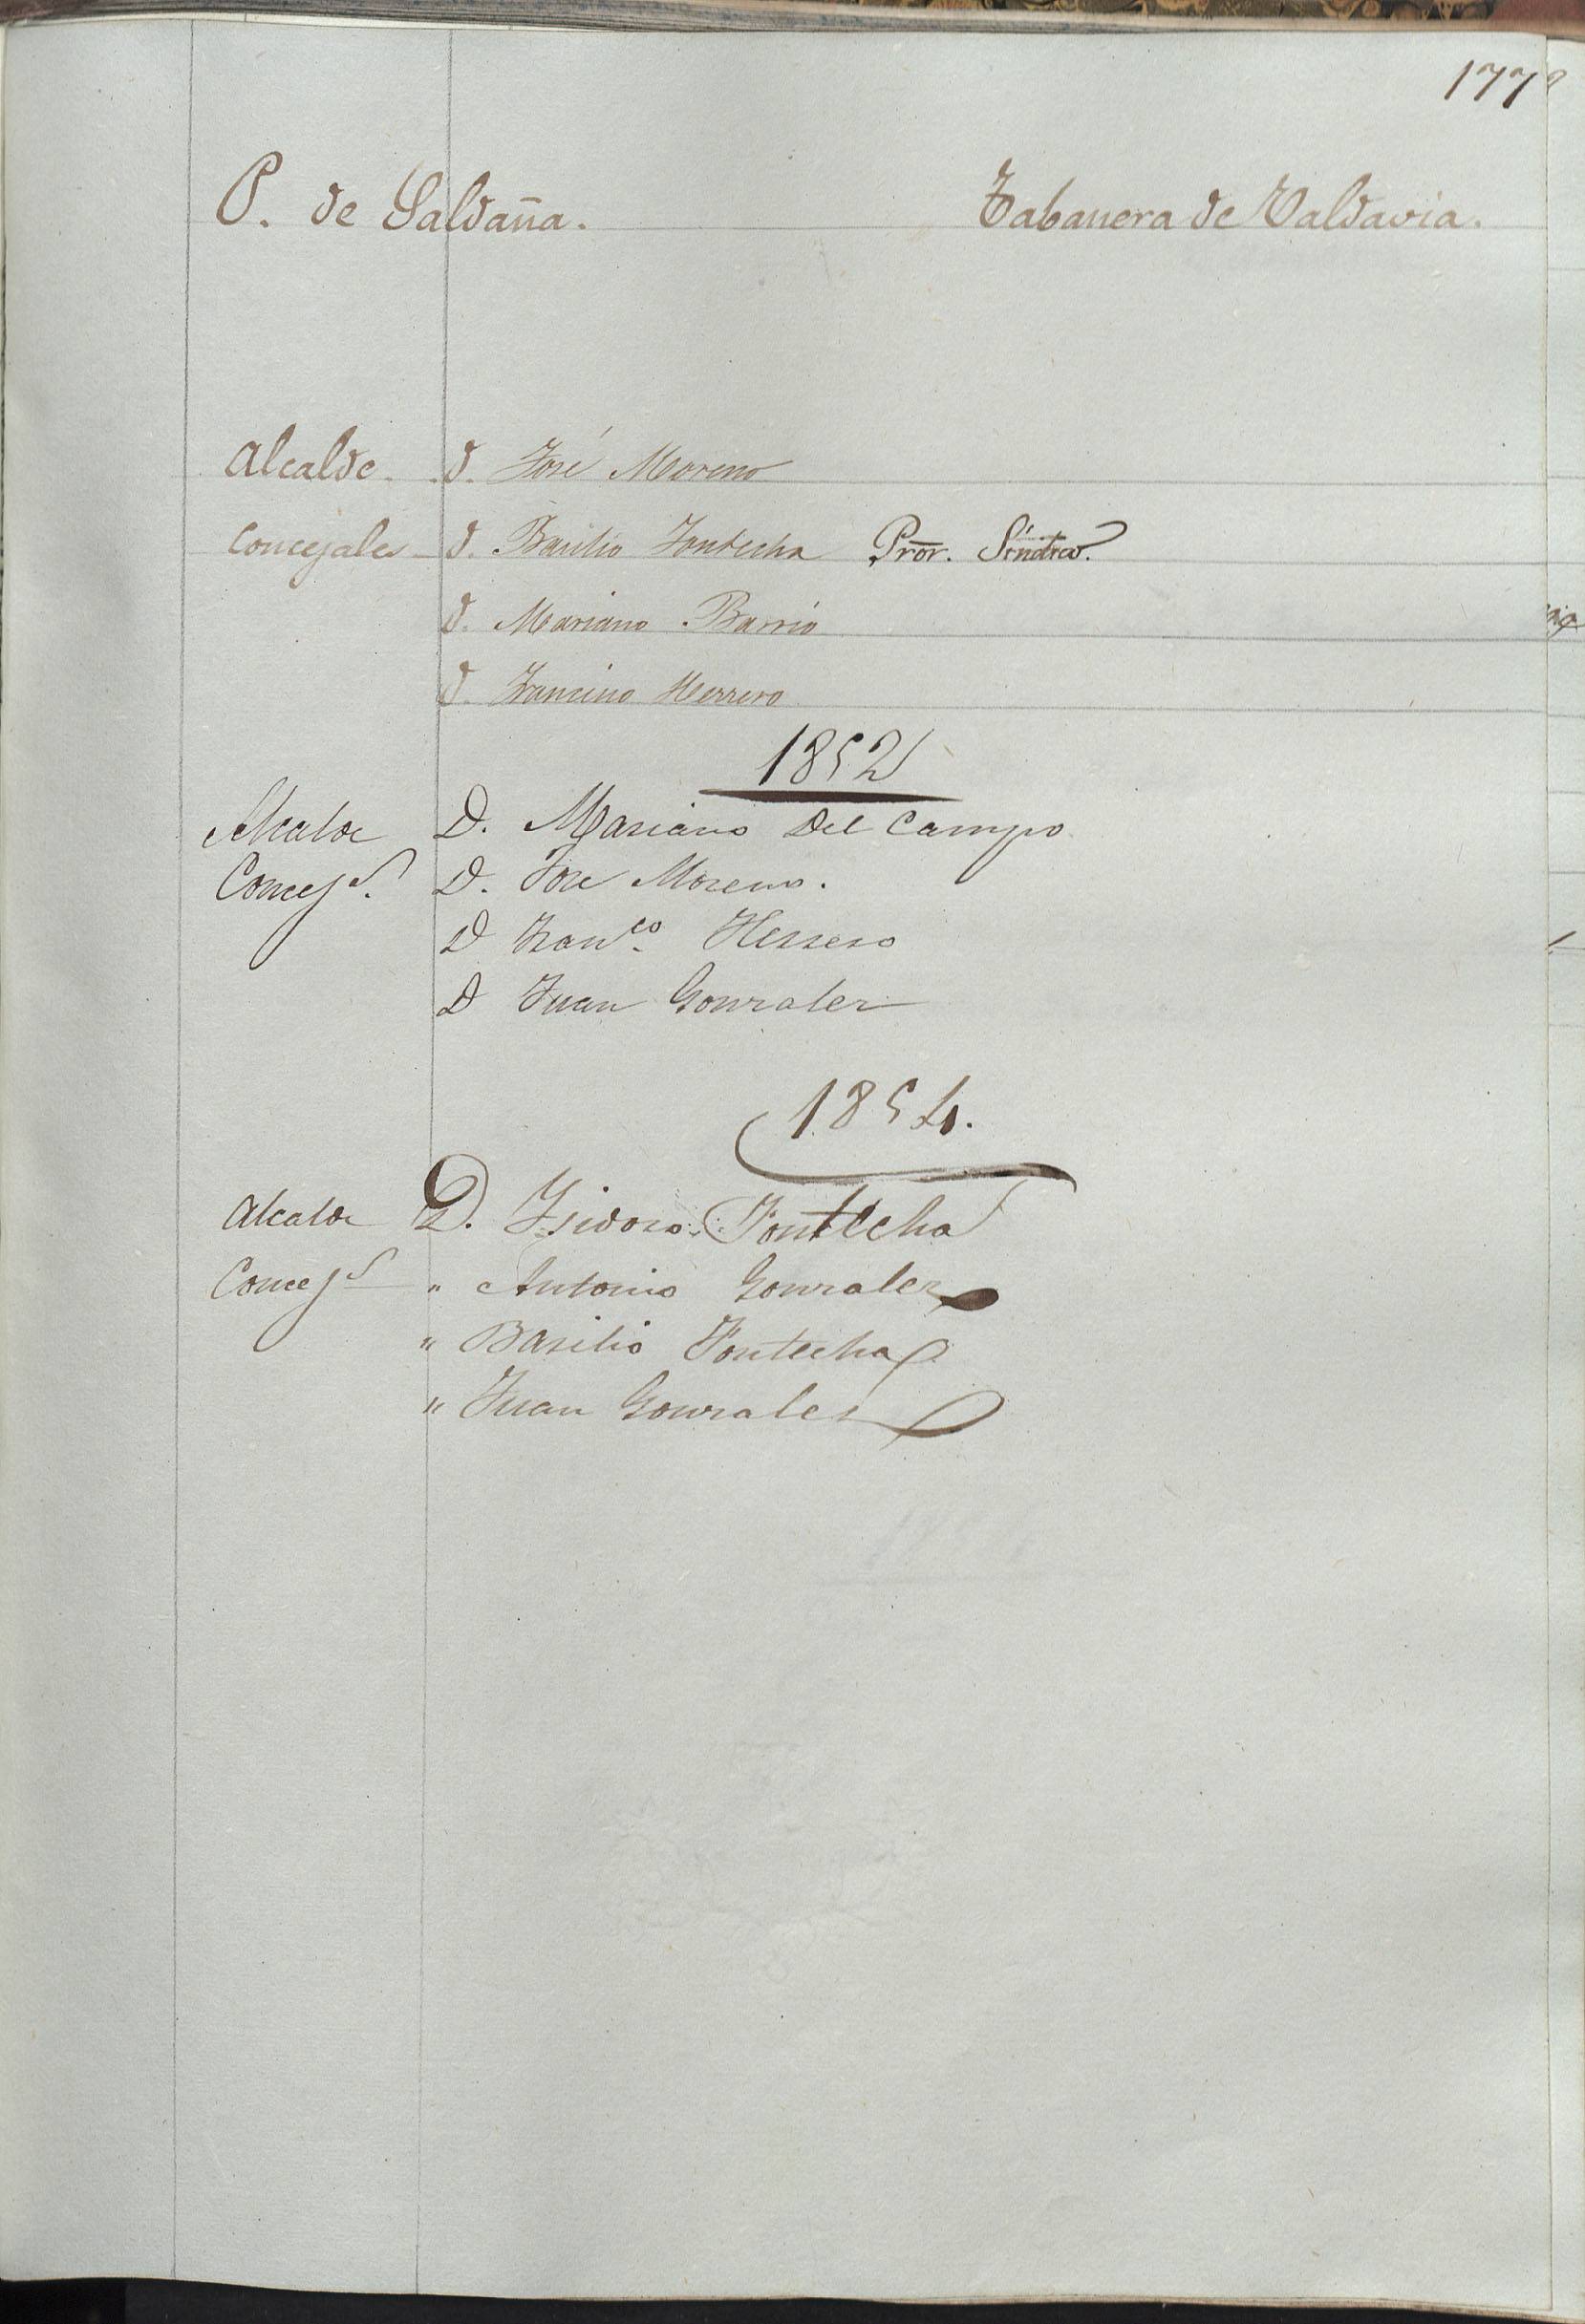 177
P. de Saldaña. Tabanera de Valdavia.
Alcalde. D. José Moreno
Concejales D. Basilio Fontecha Pror. Síndico.
D. Mariano Barrio
D. Francisco Herrero
1852
Alcalde D. Mariano Del Campo
Concejs. D. Jose Moreno.
D Franco. Herrero
D Juan Gonzalez
1854.
Alcalde D. Isidoro Fontecha
Concejs " Antonio Gonzalez
" Basilio Fontecha
" Juan Gonzalez